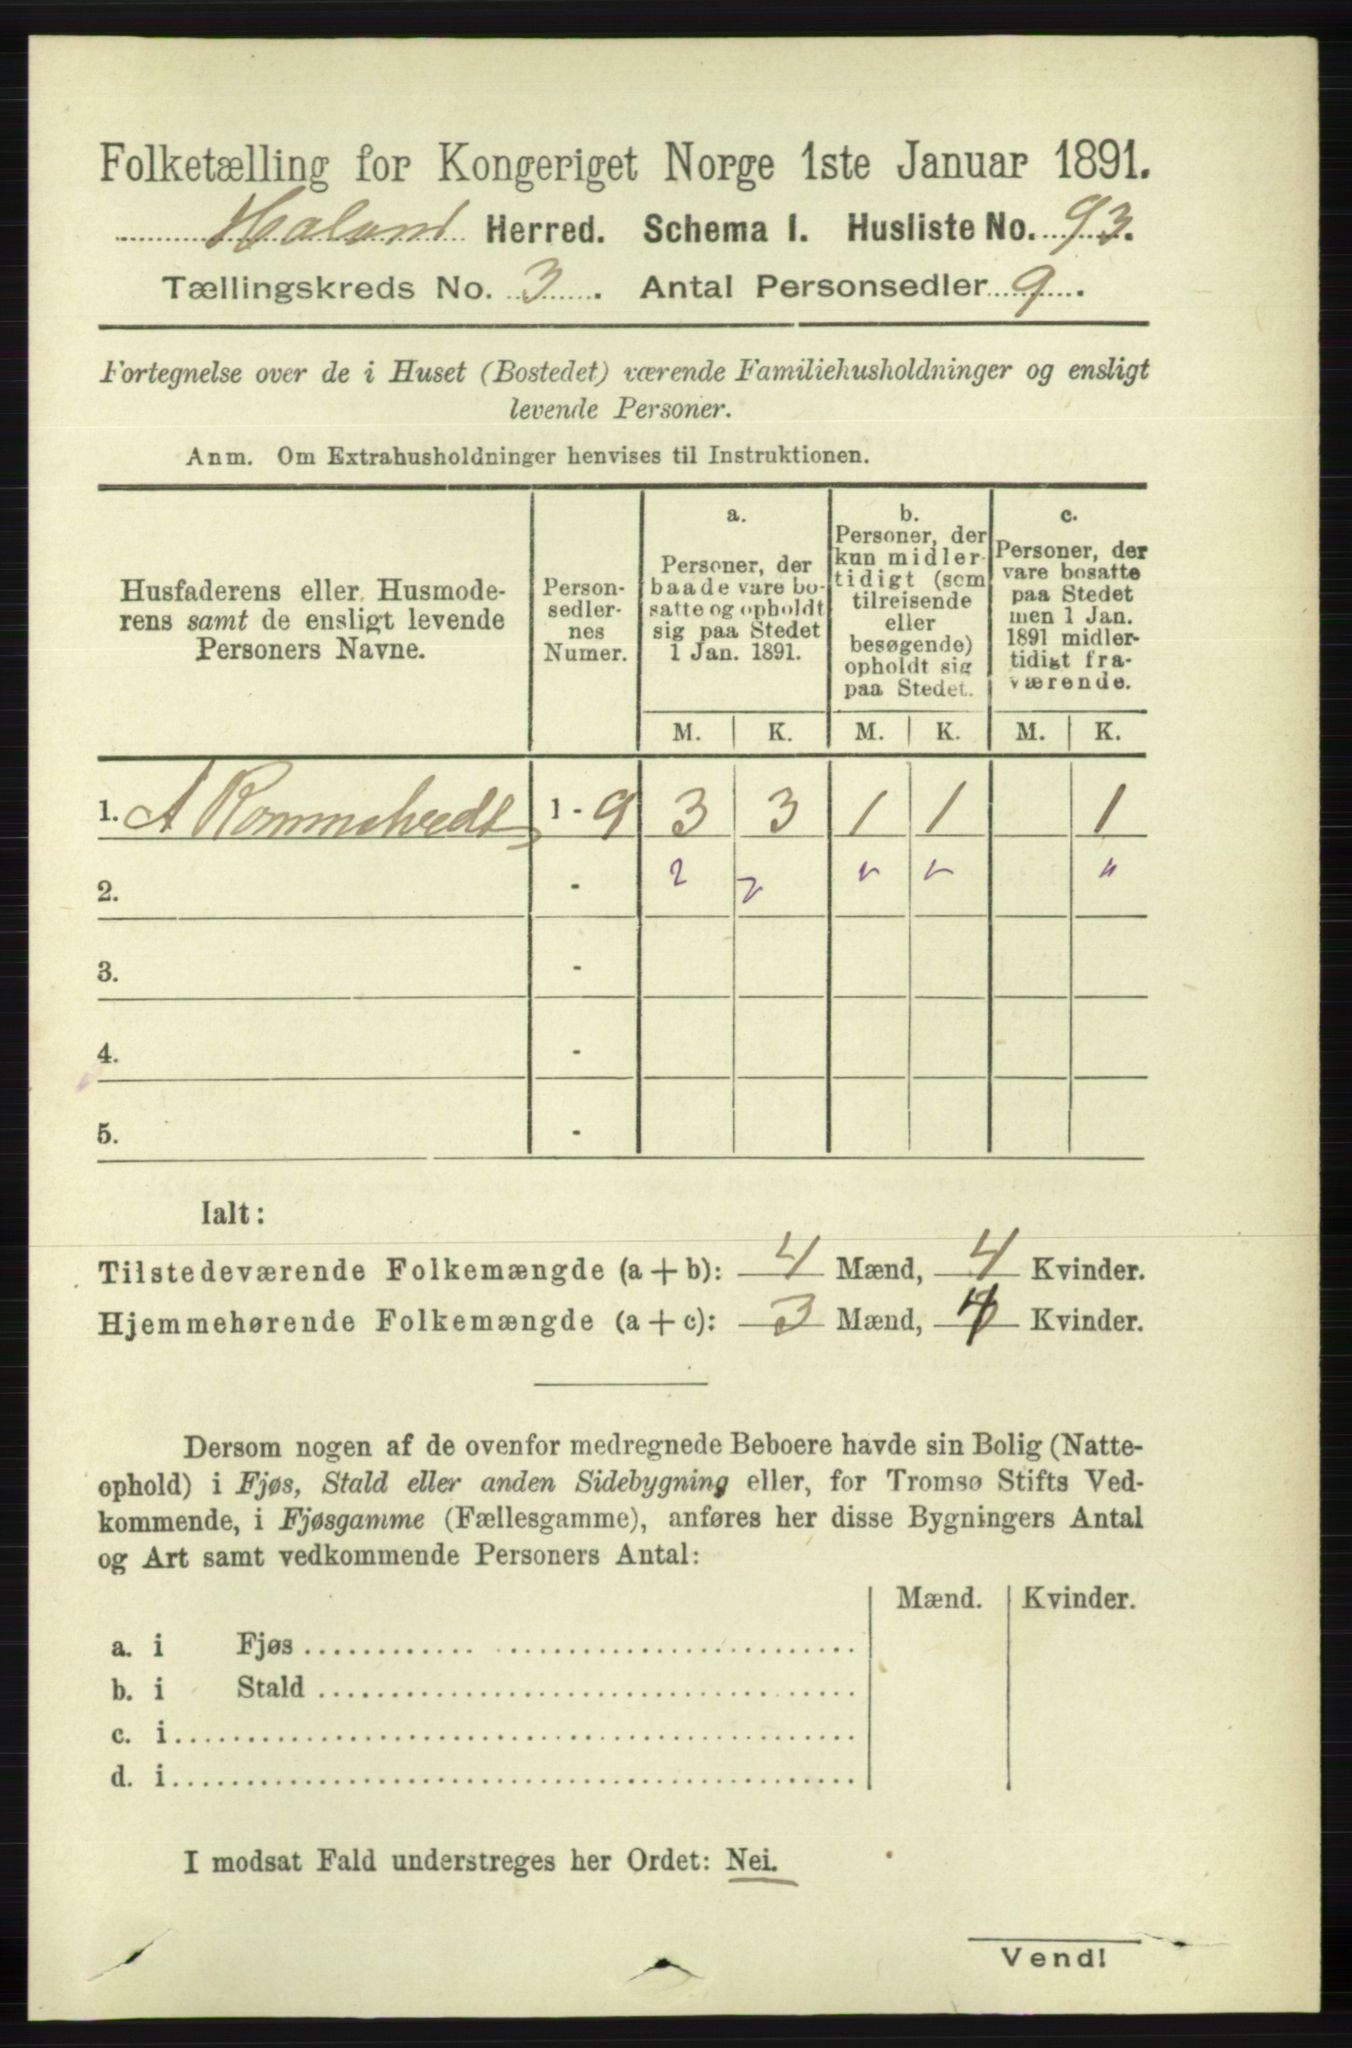 Folketælling for Kongeriget Norge 1ste Januar 1891.
Haland Herred. Schema I. Husliste No. 93.
Tællingskreds No. 3. Antal Personsedler 9.
Fortegnelse over de i Huset (Bostedet) værende Familiehusholdninger og ensligt
levende Personer.
Anm. Om Extrahusholdninger henvises til Instruktionen.
Husfaderens eller Husmode-
rens samt de ensligt levende
Personers Navne.
Person-
sedler-
nes
Numer.
a.
Personer, der
baade vare bo-
satte og opholdt
sig paa Stedet
1 Jan. 1891.
b.
Personer, der
kun midler-
tidigt (som
tilreisende
eller
besøgende)
opholdt sig
paa Stedet.
c.
Personer, der
vare bosatte
paa Stedet
men 1 Jan.
1891 midler-
tidigt fra-
værende.
M. K. M. K. M. K.
1. A Rommetvedt 1 - 9 3 3 1 1 1
2. - 2
3. -
4. -
5. -
Ialt:
Tilstedeværende Folkemængde (a + b): 4 Mænd, 4 Kvinder.
Hjemmehørende Folkemængde (a + c): 3 Mænd, 4 Kvinder.
Dersom nogen af de ovenfor medregnede Beboere havde sin Bolig (Natte-
ophold) i Fjøs, Stald eller anden Sidebygning eller, for Tromsø Stifts Ved-
kommende, i Fjøsgamme (Fællesgamme), anføres her disse Bygningers Antal
og Art samt vedkommende Personers Antal:
Mænd. Kvinder.
a. i Fjøs
b. i Stald
c. i
d. i
I modsat Fald understreges her Ordet: Nei.
Vend!